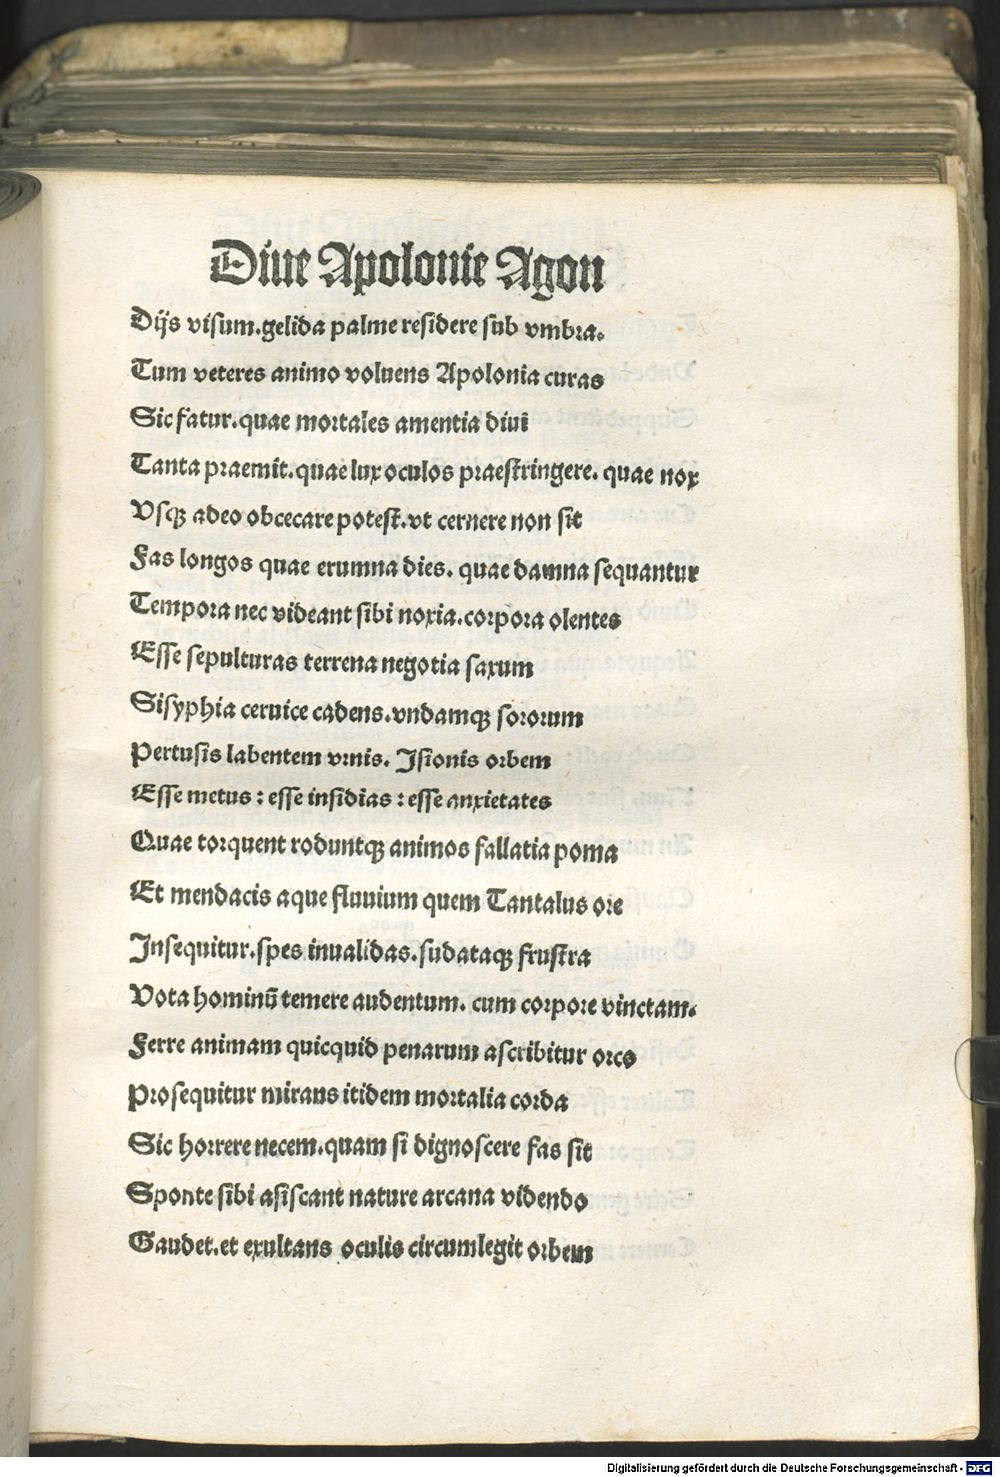 Diue Apolonie Agon
Dijs visum.gelida palme residere sub vmbra.
Tum veteres animo voluens Apolonia curas
Sic fatur.quae mortales amentia diui
Tanta praemit.quae lux oculos praestringere. quae nox
Vsqꝫ adeo obcecare potest.vt cernere non sit
Fas longos quae erumna dies. quae damna sequantur
Tempora nec videant sibi noxia.corpora olentes
Esse sepulturas terrena negotia saxum
Sisyphia ceruice cadens.vndamqꝫ sororum
Pertusis labentem vrnis. Jsionis orbem
Esse metus : esse insidias : esse anxietates
Quae torquent roduntqꝫ animos fallatia poma
Et mendacis aque fluuium quem Tantalus ore
Jnsequitur.spes inualidas.sudataqꝫ frustra
Vota hominū temere audentum. cum corpore vinctam.
Ferre animam quicquid penarum ascribitur orco
Prosequitur mirans itidem mortalia corda
Sic horrere necem.quam si dignoscere fas sit
Sponte sibi asiscant nature arcana videndo
Gaudet.et exultans oculis circumlegit orbem
Digitalisierung gefördert durch die Deutsche Forschungsgemeinschaft - DFG